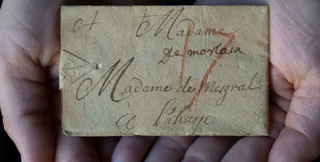 et Madame
De morlaix
Madame de Nesgral
à Lahaye